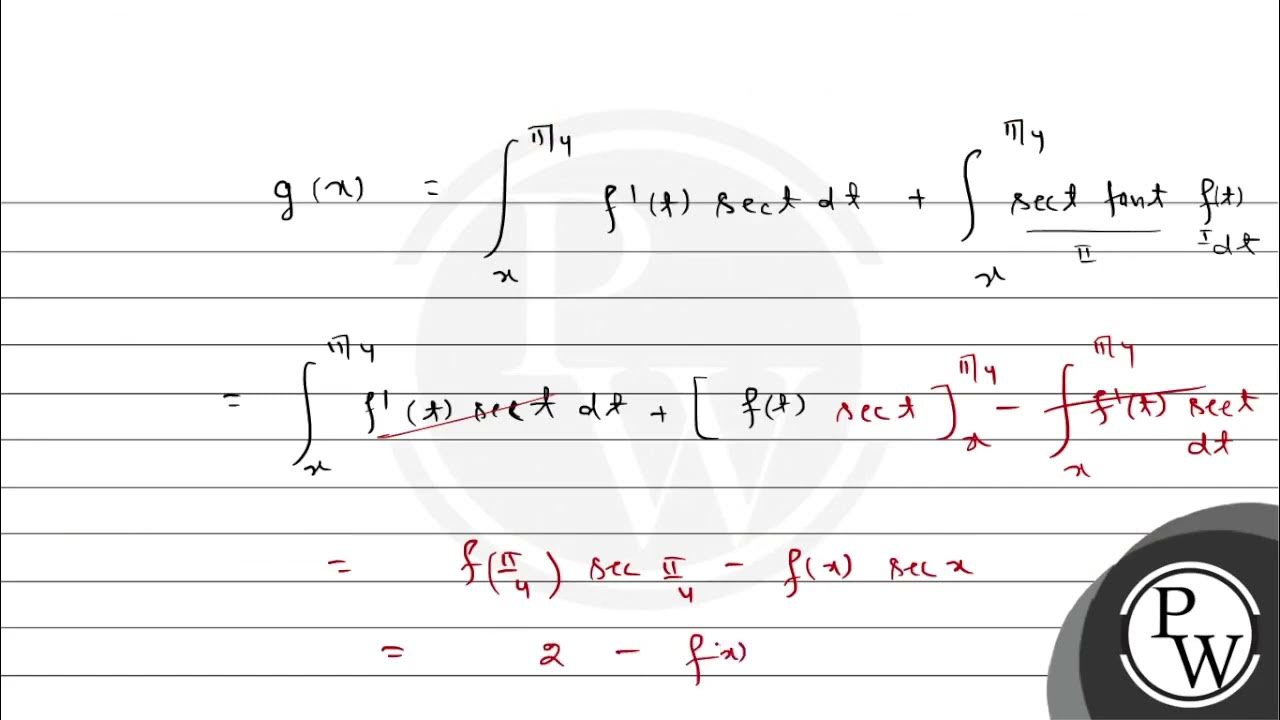 g(x) = ∫_x^{π/4} f'(t) sec t dt + ∫_x^{π/4} sec t tan t f(t) dt
II I
= ∫_x^{π/4} f'(t) sec t dt + [f(t) sec t]_x^{π/4} - ∫_x^{π/4} f'(t) sec t dt
= f(π/4) sec π/4 - f(x) sec x
= 2 - f(x)
P
W
P
W